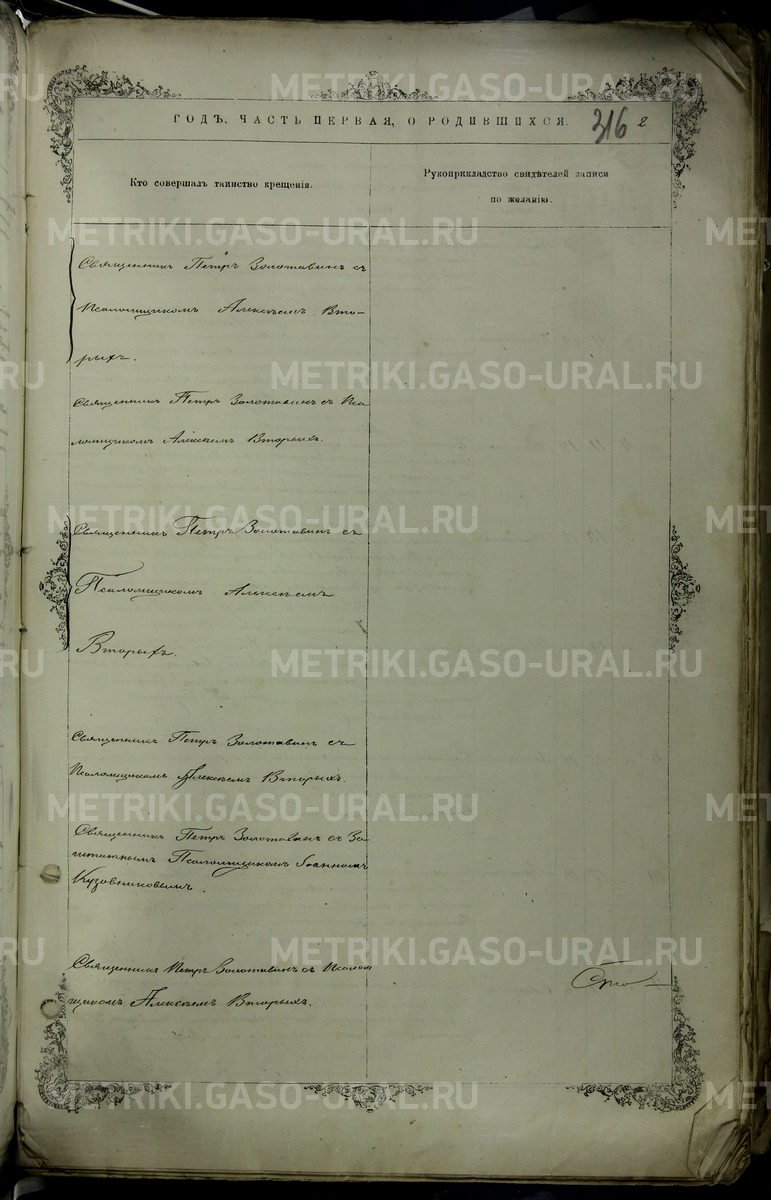 METRIKI.GASO-URAL.RU
ГОДЪ. ЧАСТЬ ПЕРВАЯ, О РОДИВШИХСЯ. 316 2
Кто совершалъ таинство крещенія.
Рукоприкладство свидѣтелей записи
по желанію.
Священникъ Петръ Золотавинъ съ
Псаломщикомъ Алексѣемъ Вто-
рыхъ.
Священникъ Петръ Золотавинъ съ Пса
ломщикомъ Алексѣемъ Вторыхъ.
Священникъ Петръ Золотавинъ съ
Псаломщикомъ Алексѣемъ
Вторыхъ.
Священникъ Петръ Золотавинъ съ
Псаломщикомъ Алексѣемъ Вторыхъ.
Священникъ Петръ Золотавинъ съ За
штатнымъ Псаломщикомъ Іоанномъ
Кузовниковымъ.
Священникъ Петръ Золотавинъ съ Псалом
щикомъ Алексѣемъ Вторыхъ.